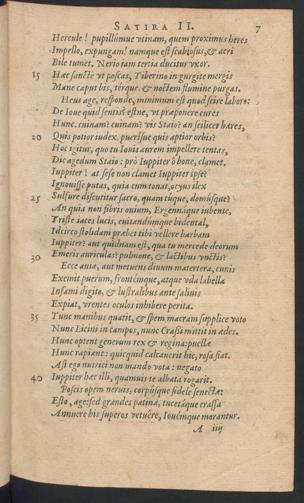 SATIRA II. 7
Hercule! pupillúmue vtinam, quem proximus heres
Impello, expungam! namque est scabiosus, & acri
Bile tumet. Nerio iam tertia ducitur vxor.
15 Hæc sanctè vt poscas, Tiberino in gurgite mergis
Mane caput bis, térque. & noctem flumine purgas.
Heus age, responde, minimum est quod scire laboro:
De Ioue quid sentis? estne, vt præponere cures
Hunc, cuinam? cuinam? vis Staio? an scilicet hæres,
20 Quis potior iudex, puerísue quis aptior orbis?
Hoc igitur, quo tu Iouis aurem impellere tentas,
Dic agedum Staio: prô Iuppiter ô bone, clamet,
Iuppiter! at sese non clamet Iuppiter ipse?
Ignouisse putas, quia cum tonat, ocyus ilex
25 Sulfure discutitur sacro, quam túque, domúsque?
An quia non fibris ouium, Ergennáque iubente,
Triste iaces lucis, euitandúmque bidental,
Idcirco stolidam præbet tibi vellere barbam
Iuppiter? aut quidnam est, qua tu mercede deorum
30 Emeris auriculas? pulmone, & lactibus vnctis?
Ecce auia, aut metuens diuum matertera, cunis
Exemit puerum, frontémque, atque vda labella
Infami digito, & lustralibus ante saliuis
Expiat, vrentes oculos inhibere perita.
35 Tunc manibus quatit, & spem macram supplice voto
Nunc Licini in campos, nunc Crassi mittit in ædes.
Hunc optent generum rex & regina: puellæ
Hunc rapiant: quicquid calcauerit hic, rosa fiat.
Ast ego nutrici non mando vota: negato
40 Iuppiter hæc illi, quamuis te albata rogarit.
Poscis opem neruis, corpúsque fidele senectæ:
Esto, age: sed grandes patinæ, tucetáque crassa
Annuere his superos vetuêre, Iouémque morantur.
A iiij